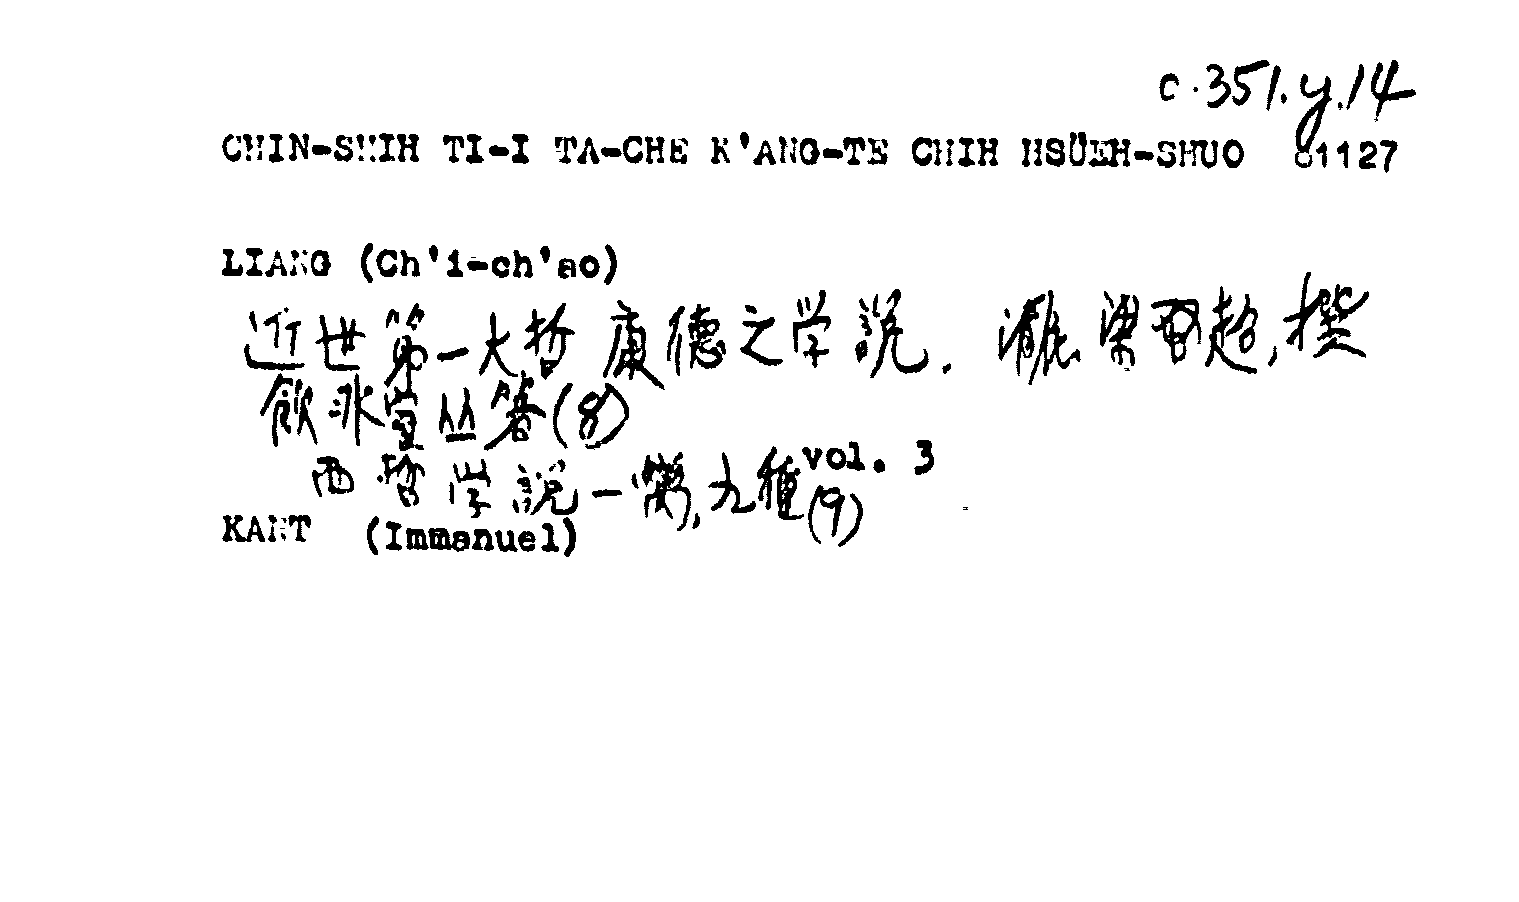 c.351.y.14
CHIN-SHIH TI-I TA-CHE K'ANG-TE CHIH HSÜEH-SHUO 61127
LIANG (Ch'i-ch'ao)
近世第一大哲康德之学說. 梁啓超,撰
飲冰室丛著(8)
西哲学說一臠,九種 vol. 3
(9)
KANT (Immanuel)